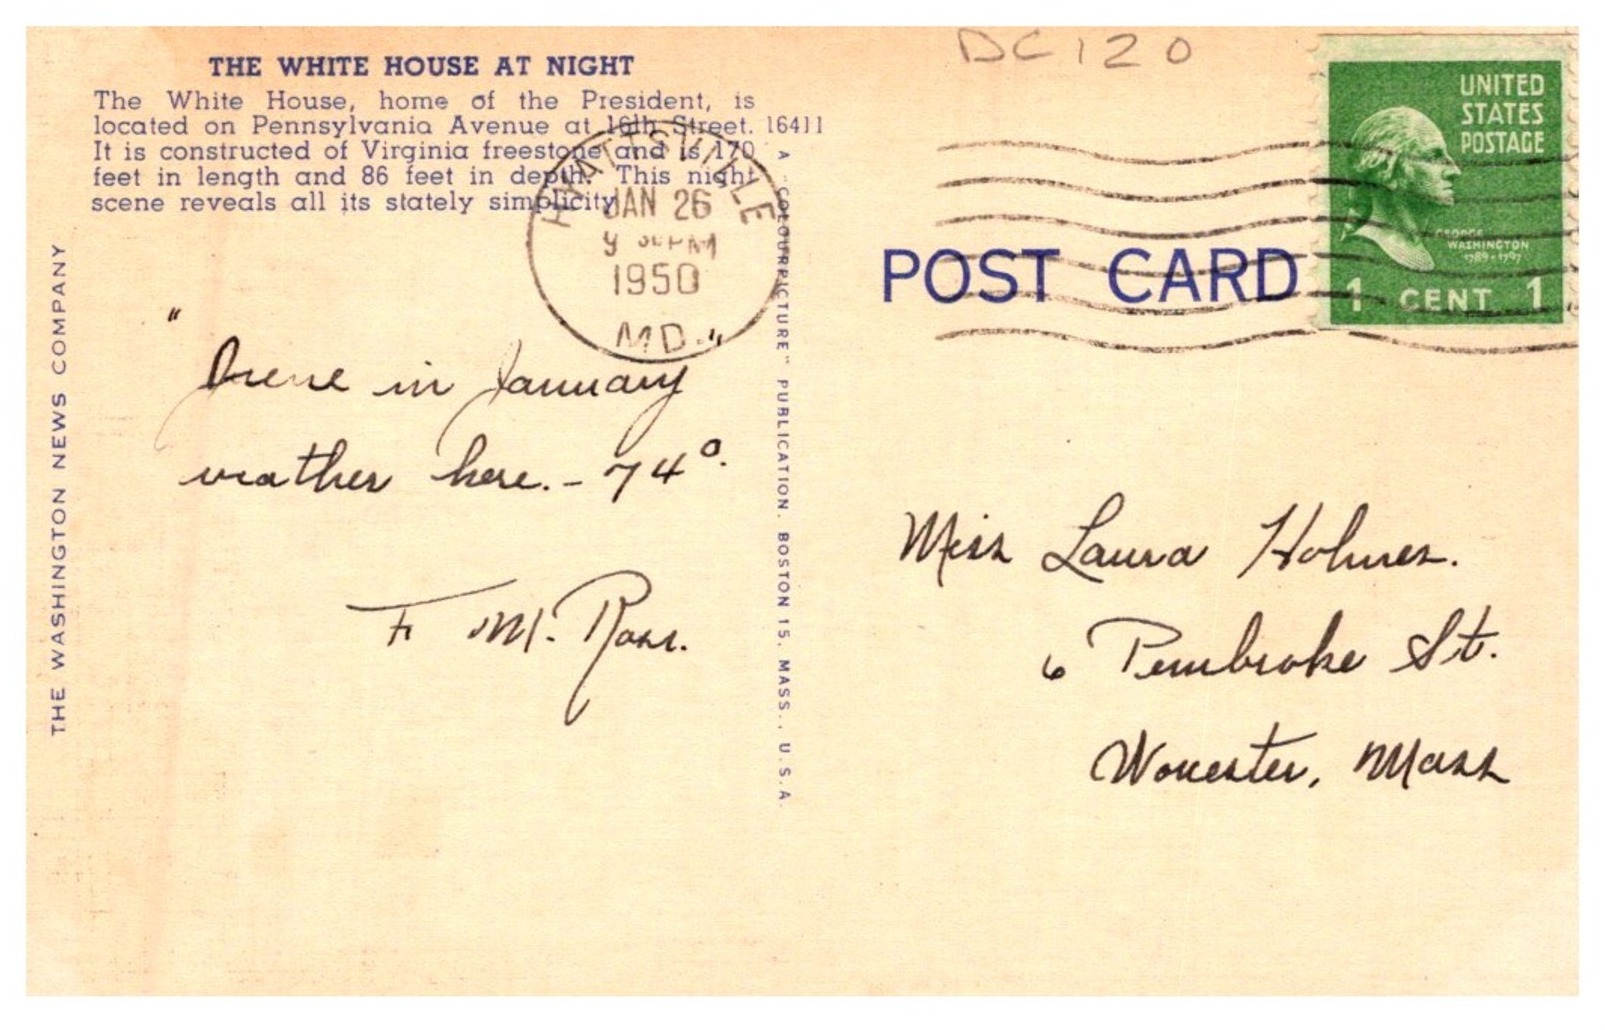 DC120
THE WHITE HOUSE AT NIGHT
The White House, home of the President, is
located on Pennsylvania Avenue at 16th Street.
It is constructed of Virginia freestone and is 170
feet in length and 86 feet in depth. This night
scene reveals all its stately simplicity.
16411
THE WASHINGTON NEWS COMPANY
A "COLOURPICTURE" PUBLICATION. BOSTON 15, MASS., U.S.A.
HYATTSVILLE
JAN 26
9 30 PM
1950
MD.
POST CARD
UNITED
STATES
POSTAGE
GEORGE
WASHINGTON
1789-1797
1 CENT 1
" in January "
weather here. - 74°.
F M. Ross.
Miss Laura Holmes.
6 Pembroke St.
Worcester, Mass